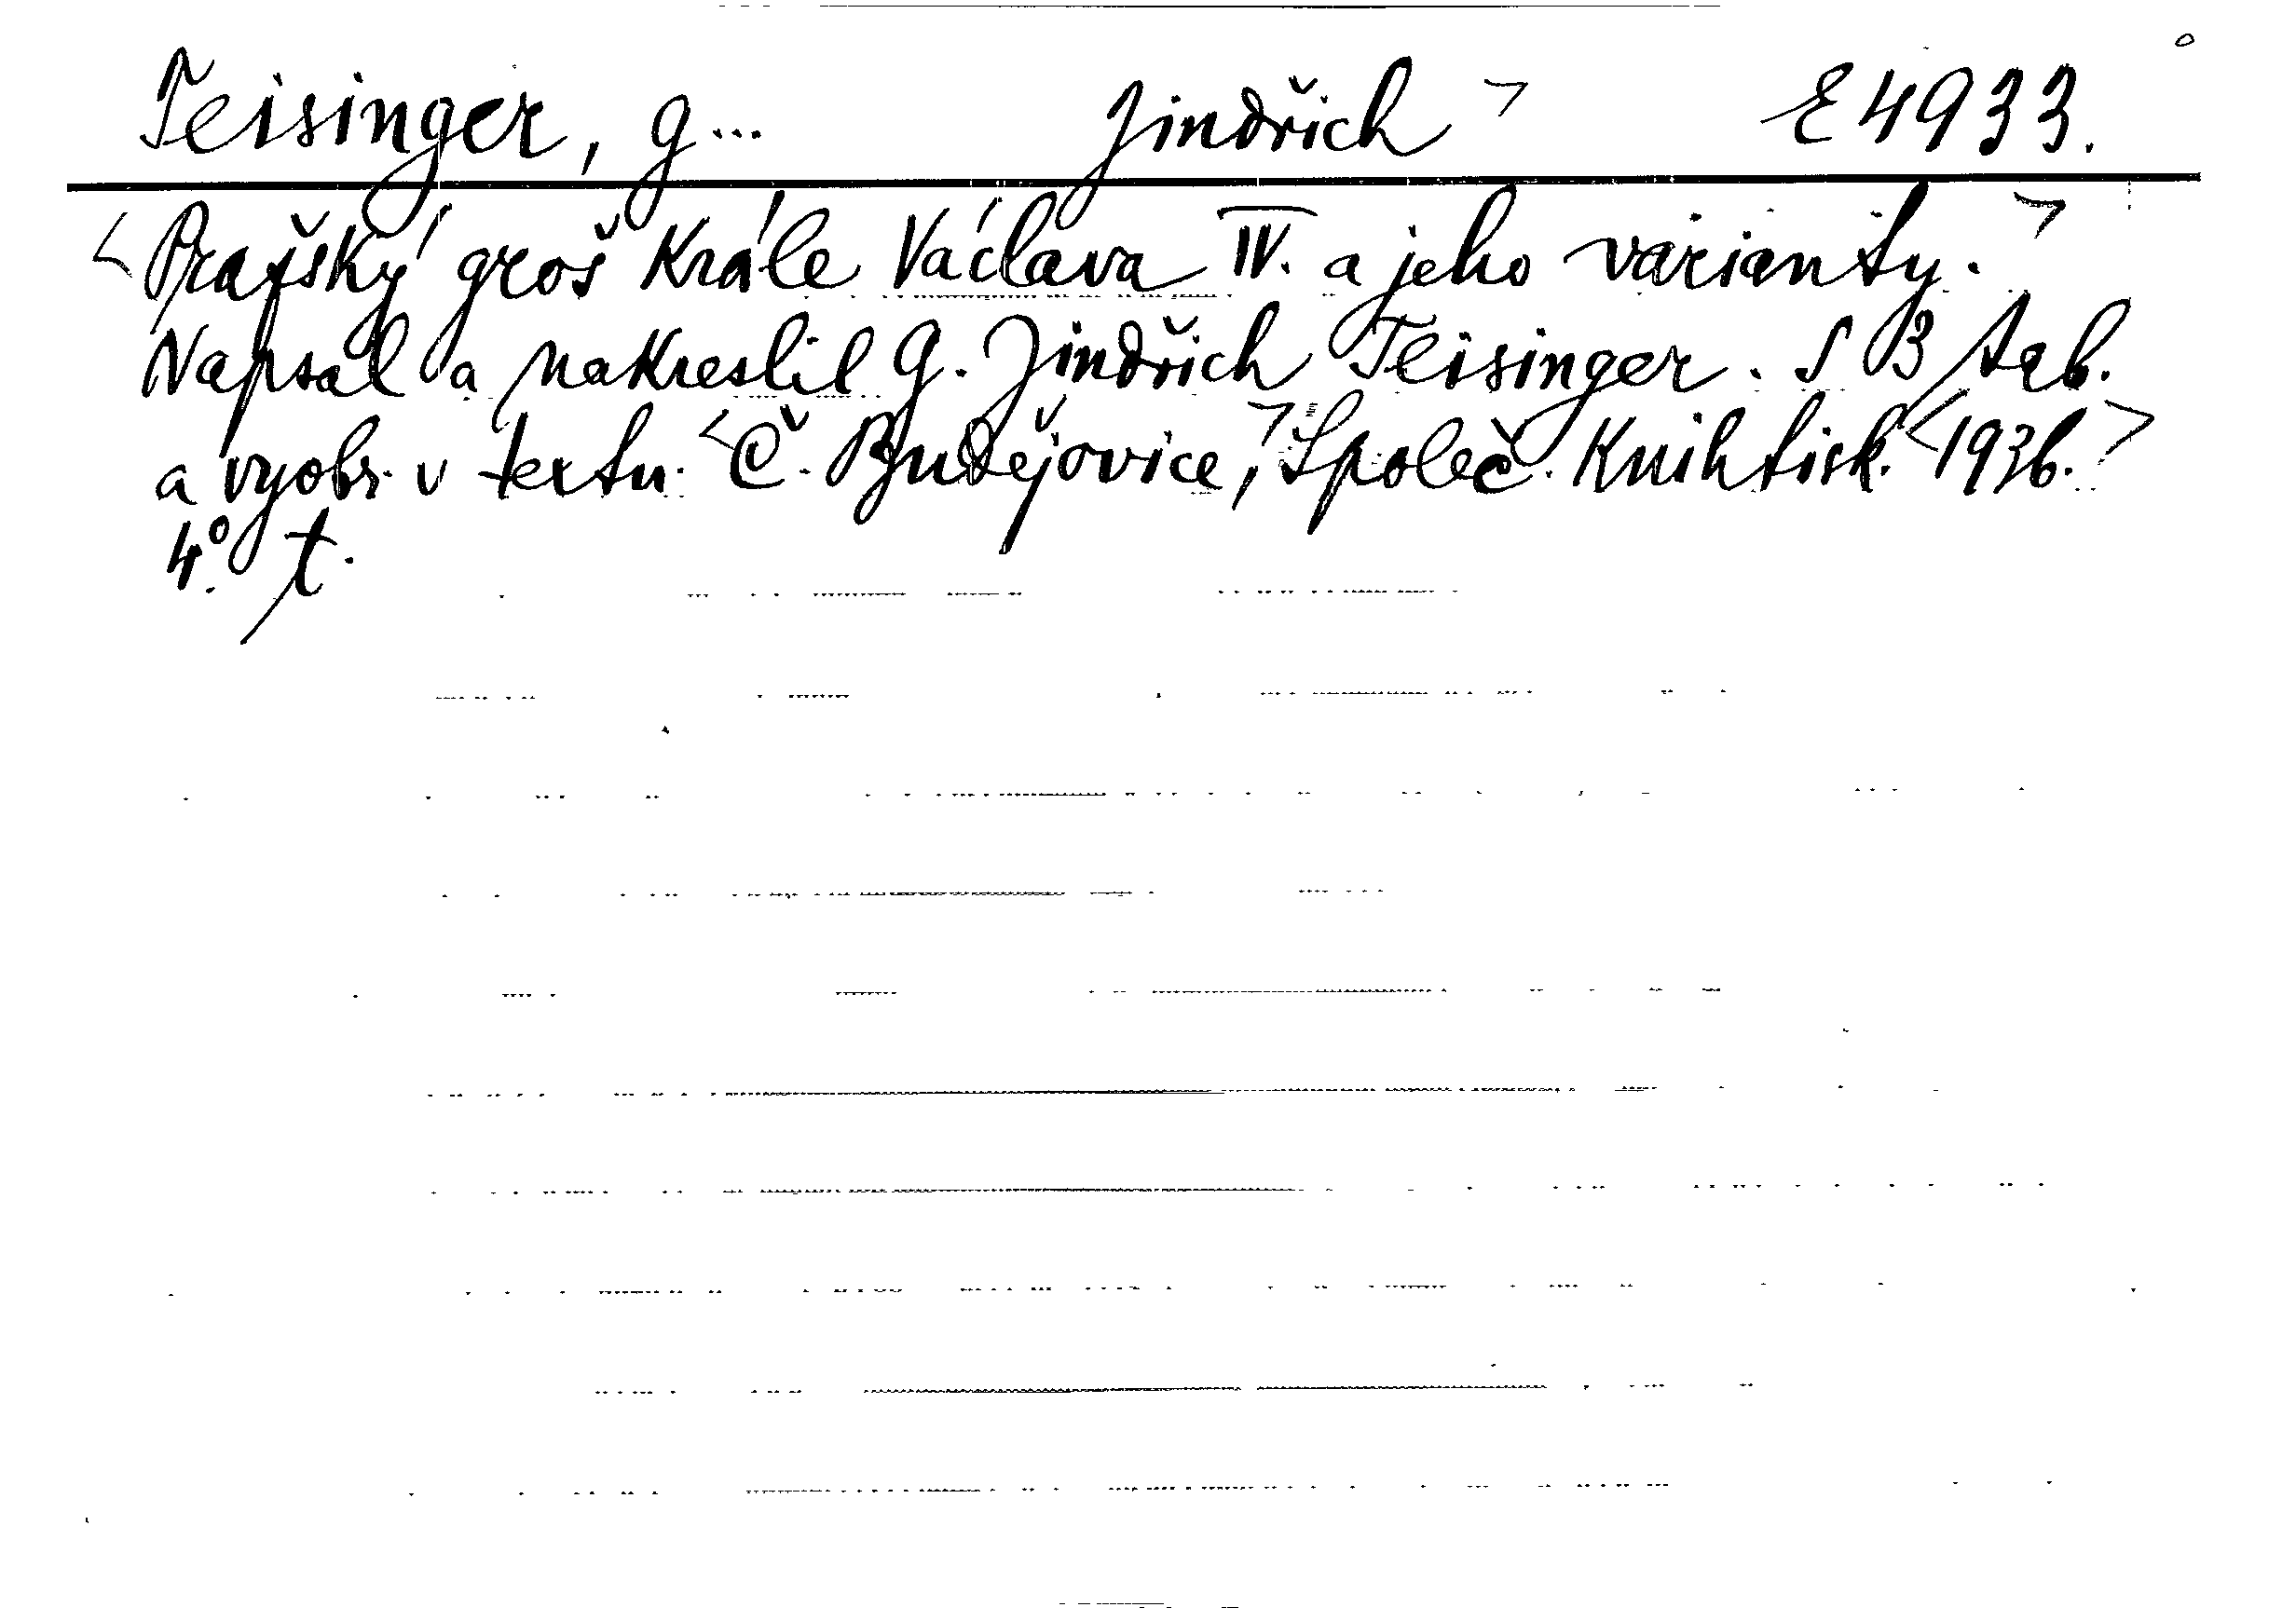 Teisinger, G... Jindřich > E 4933.
<Pražský groš krále Václava IV. a jeho varianty.>
Napsal a nakreslil G. Jindřich Teisinger. S 3 tab.
a vyobr. v textu. <Č. Budějovice,> Společ. knihtisk. <1936.>
4° t.